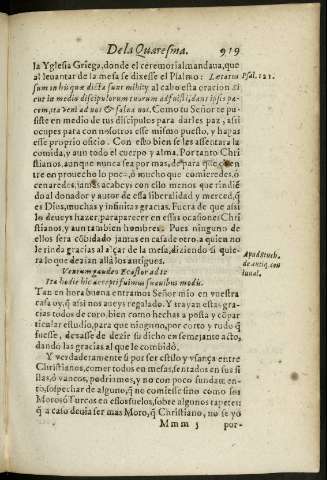 De la Quaresma. 919
la Yglesia Griega, donde el ceremorial mandaua, que
al leuantar de la mesa se dixesse el Psalmo: Lætatus
Psal. 121.
sum in his quæ dicta sunt mihi, y al cabo esta oracion Si
cut in medio discipulorum tuorum adfuisti, dans ipsis pa-
cem, ita veni ad nos & salua nos. Como tu Señor te pu-
siste en medio de tus discipulos para darles paz, assi
ocupes para con nosotros esse mismo puesto, y hapas
esse proprio oficio. Con esto bien se les assentara la
comida, y aun todo el cuerpo y alma. Por tanto Chri
stianos, aunque nunca sea por mas, de para que
tre en prouecho lo poco, ó mucho que comieredes, ó
cenaredes, jamas acabeys con ello menos que rindiẽ
do al donador y autor de essa liberalidad y merced, q̃
es Dios, muchas y infinitas gracias. Fuera de que assi
lo deueys hazer, para parecer en essas ocasiones Chri
stianos, y aun tambien hombres. Pues ninguno de
ellos sera cõbidado jamas en casa de otro, a quien no
le rinda gracias al alçar de la mesa, diziendo si quie-
ra lo que dezian allá los antiguos.
Apud Stuch.
de antiq. con
uiual.
Verum gaudeo Ecastor ad te
Ita hodie hic accepti fuimus suauibus modis.
Tan en hora buena entramos Señor mio en vuestra
casa oy, q̃ assi nos aueys regalado. Y trayan estas gra-
cias todos de coro, bien como hechas a posta y cõ par
ticular estudio, para que ninguno, por corto y rudo q̃
fuesse, dexasse de dezir su dicho en semejante acto,
dando las gracias al que le combidó.
Y verdaderamente si por ser estilo y vsança entre
Christianos, comer todos en mesas, sentados en sus si
llas, ó vancos, podriamos, y no con poco fundamẽ en-
to, sospechar de alguno, q̃ no comiesse sino como los
Moros ó Turcos en essos suelos, sobre algunos tapetes:
q̃ a caso deuia ser mas Moro, q̃ Christiano, no se yo
Mmm 3 por-